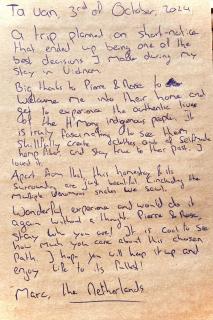 Ta Van, 3rd of October, 2024
A trip planned on short-notice
that ended up being one of the
best decisions I made during my
stay in Vietnam.
Big thanks to Pierre & Rose to
welcome me into their home and
get to experience the authentic lives
of the Hmong indigenous people. It
is truly fascinating to see them
skillfully create clothes out of self-made
hemp fiber, and stay true to their past. I
loved it.
Apart from that, this homestay & its
surrounding are just beautiful (including the
multiple venomous snakes we saw).
Wonderful experience and would do it
again without a thought. Pierre & Rose,
stay who you are! It is cool to see
how much you care about this chosen
path. I hope you will keep it up and
enjoy life to its fullest!
Marc, the Netherlands